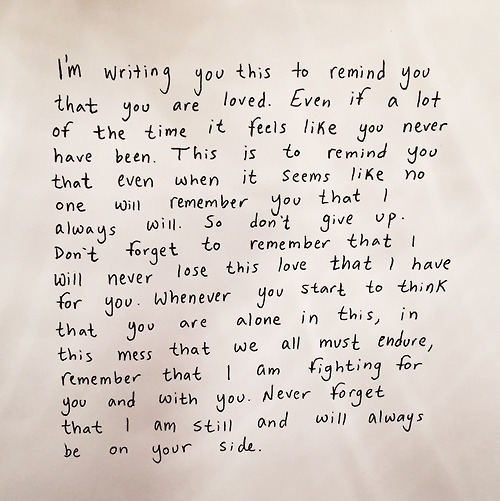 I'm writing you this to remind you
that you are loved. Even if a lot
of the time it feels like you never
have been. This is to remind you
that even when it seems like no
one will remember you that I
always will. So don't give up.
Don't forget to remember that I
will never lose this love that I have
for you. Whenever you start to think
that you are alone in this, in
this mess that we all must endure,
remember that I am fighting for
you and with you. Never forget
that I am still and will always
be on your side.